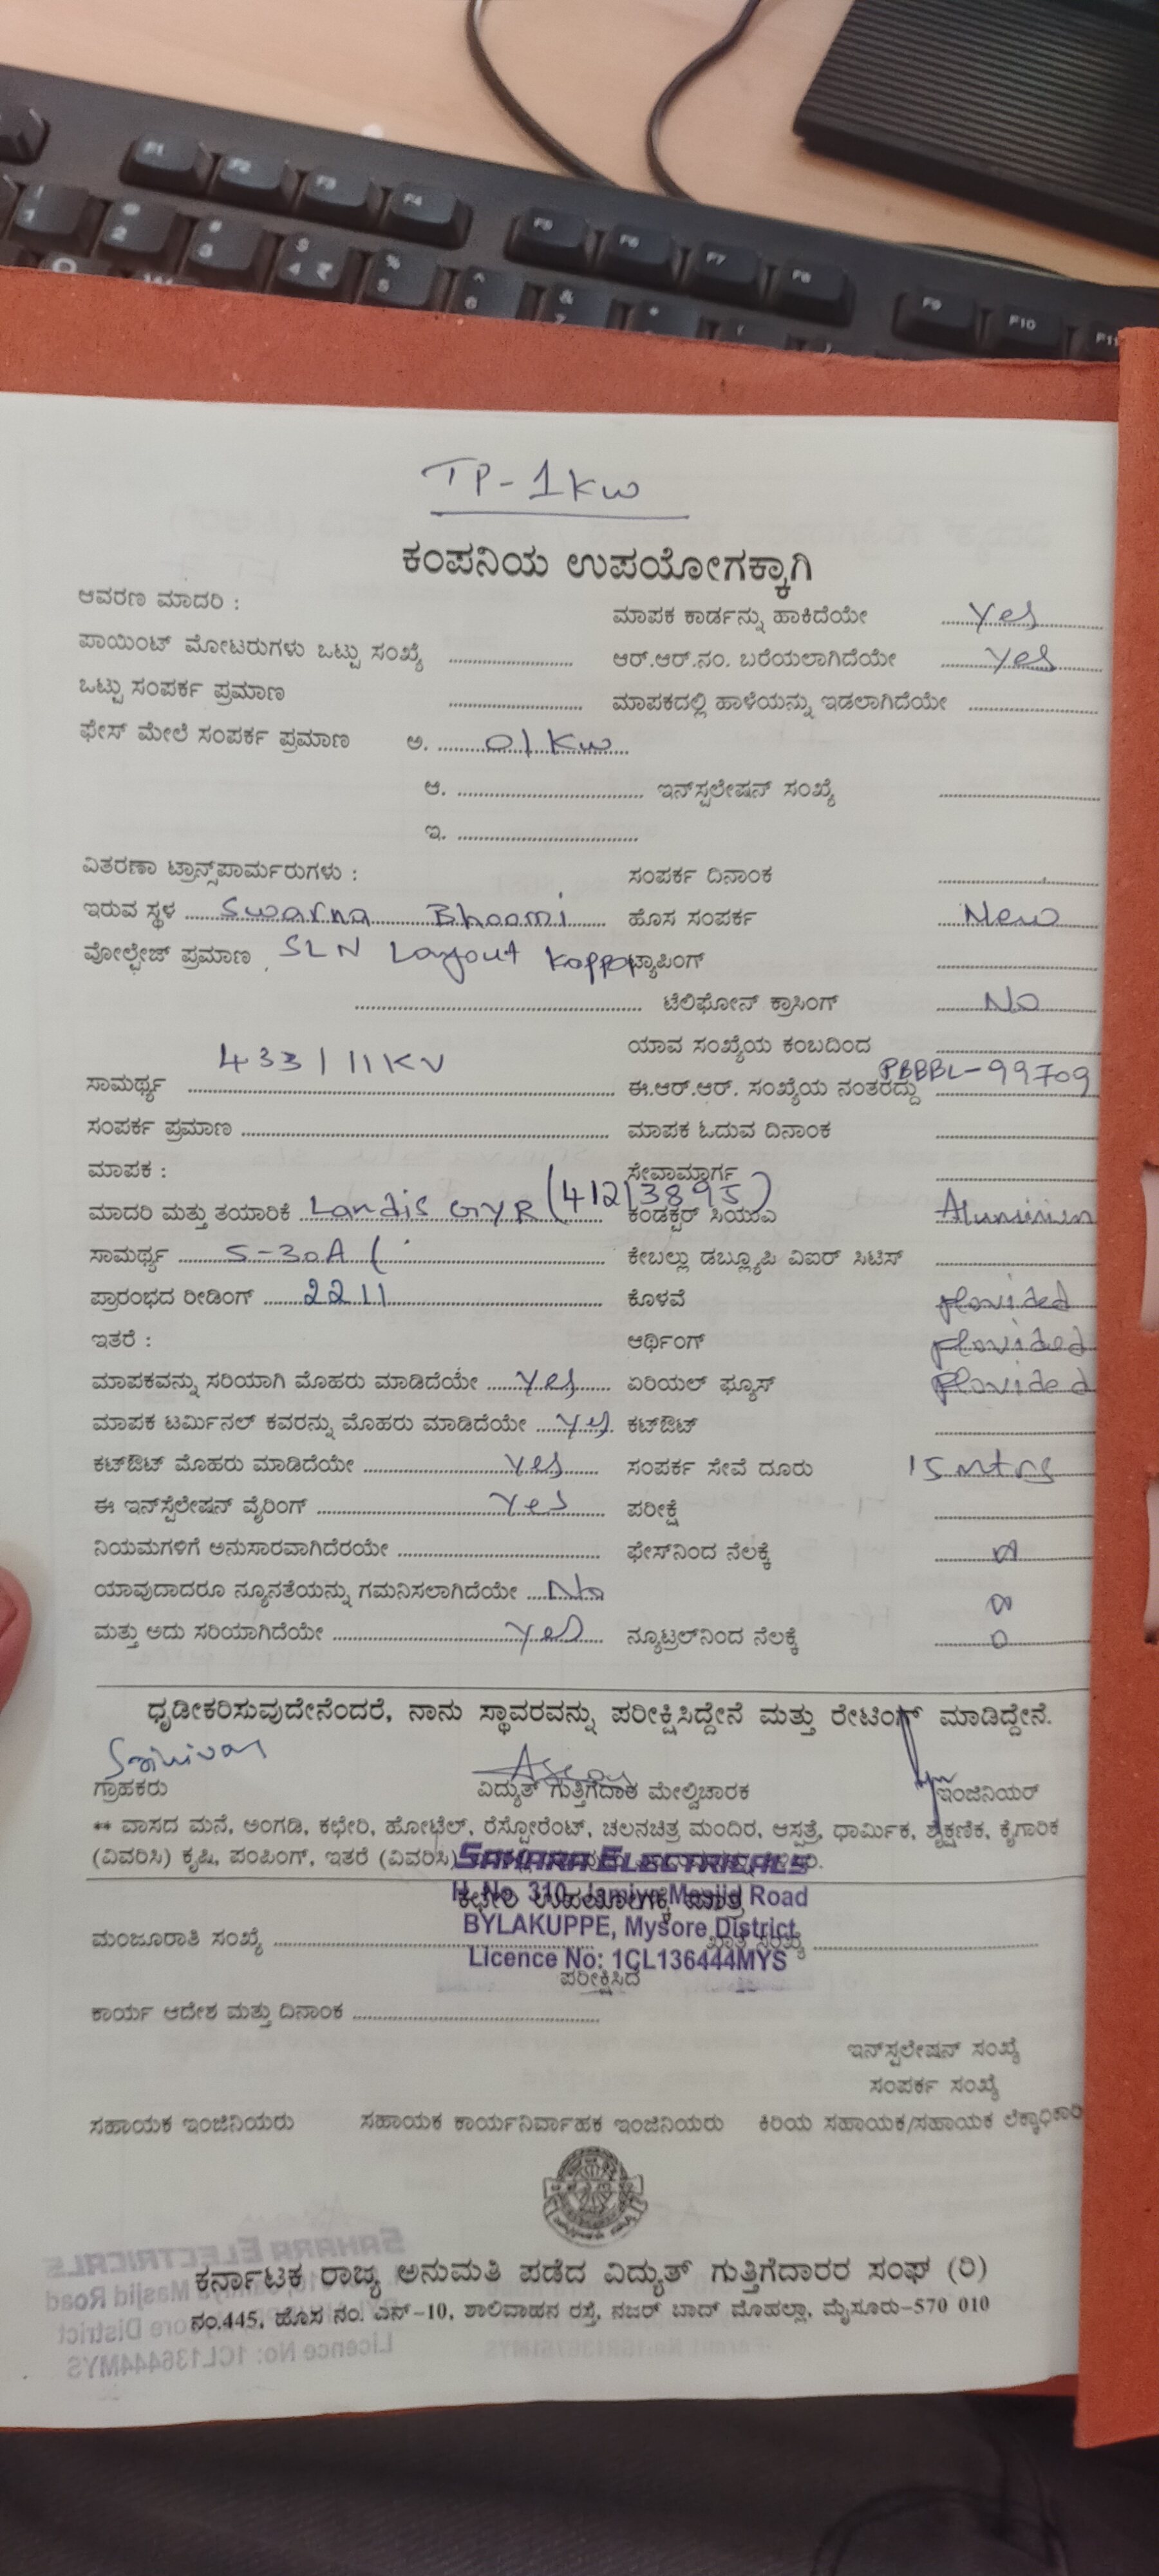 TP-1KW
ಕಂಪನಿಯ ಉಪಯೋಗಕ್ಕಾಗಿ
ಆವರಣ ಮಾದರಿ : ಮಾಪಕ ಕಾರ್ಡನ್ನು ಹಾಕಿದೆಯೇ yes
ಪಾಯಿಂಟ್ ಮೋಟರುಗಳು ಒಟ್ಟು ಸಂಖ್ಯೆ ಆರ್.ಆರ್.ನಂ. ಬರೆಯಲಾಗಿದೆಯೇ yes
ಒಟ್ಟು ಸಂಪರ್ಕ ಪ್ರಮಾಣ ಮಾಪಕದಲ್ಲಿ ಹಾಳೆಯನ್ನು ಇಡಲಾಗಿದೆಯೇ
ಫೇಸ್ ಮೇಲೆ ಸಂಪರ್ಕ ಪ್ರಮಾಣ ಅ. 01 KW
ಆ. ಇನ್‌ಸ್ಪಲೇಷನ್ ಸಂಖ್ಯೆ
ಇ.
ವಿತರಣಾ ಟ್ರಾನ್ಸ್‌ಪಾರ್ಮರುಗಳು : ಸಂಪರ್ಕ ದಿನಾಂಕ
ಇರುವ ಸ್ಥಳ Swarna Bhoomi ಹೊಸ ಸಂಪರ್ಕ New
ವೋಲ್ಟೇಜ್ ಪ್ರಮಾಣ SLN Layout Koppa ಟ್ಯಾಪಿಂಗ್
ಟೆಲಿಫೋನ್ ಕ್ರಾಸಿಂಗ್ No
ಯಾವ ಸಂಖ್ಯೆಯ ಕಂಬದಿಂದ
ಸಾಮರ್ಥ್ಯ 433/11KV ಈ.ಆರ್.ಆರ್. ಸಂಖ್ಯೆಯ ನಂತರದ್ದು PBBBL-99709
ಸಂಪರ್ಕ ಪ್ರಮಾಣ ಮಾಪಕ ಓದುವ ದಿನಾಂಕ
ಮಾಪಕ : ಸೇವಾಮಾರ್ಗ
ಮಾದರಿ ಮತ್ತು ತಯಾರಿಕೆ Landis GYR (41213895) ಕಂಡಕ್ಟರ್ ಸಿಯುಎ Aluminium
ಸಾಮರ್ಥ್ಯ 5-30A ( ಕೇಬಲ್ಲು ಡಬ್ಲ್ಯೂಪಿ ವಿಐರ್ ಸಿಟಿಸ್
ಪ್ರಾರಂಭದ ರೀಡಿಂಗ್ 2211 ಕೊಳವೆ provided
ಇತರೆ : ಆರ್ಥಿಂಗ್ provided
ಮಾಪಕವನ್ನು ಸರಿಯಾಗಿ ಮೊಹರು ಮಾಡಿದೆಯೇ yes ಏರಿಯಲ್ ಫ್ಯೂಸ್ provided
ಮಾಪಕ ಟರ್ಮಿನಲ್ ಕವರನ್ನು ಮೊಹರು ಮಾಡಿದೆಯೇ yes ಕಟ್‌ಔಟ್
ಕಟ್‌ಔಟ್ ಮೊಹರು ಮಾಡಿದೆಯೇ yes ಸಂಪರ್ಕ ಸೇವೆ ದೂರು 15 mtrs
ಈ ಇನ್‌ಸ್ಟೆಲೇಷನ್ ವೈರಿಂಗ್ yes ಪರೀಕ್ಷೆ
ನಿಯಮಗಳಿಗೆ ಅನುಸಾರವಾಗಿದೆರಯೇ ಫೇಸ್‌ನಿಂದ ನೆಲಕ್ಕೆ
ಯಾವುದಾದರೂ ನ್ಯೂನತೆಯನ್ನು ಗಮನಿಸಲಾಗಿದೆಯೇ No
ಮತ್ತು ಅದು ಸರಿಯಾಗಿದೆಯೇ yes ನ್ಯೂಟ್ರಲ್‌ನಿಂದ ನೆಲಕ್ಕೆ 0
ಧೃಡೀಕರಿಸುವುದೇನೆಂದರೆ, ನಾನು ಸ್ಥಾವರವನ್ನು ಪರೀಕ್ಷಿಸಿದ್ದೇನೆ ಮತ್ತು ರೇಟಿಂಗ್ ಮಾಡಿದ್ದೇನೆ.
ಗ್ರಾಹಕರು ವಿದ್ಯುತ್ ಗುತ್ತಿಗೆದಾರ ಮೇಲ್ವಿಚಾರಕ ಇಂಜಿನಿಯರ್
** ವಾಸದ ಮನೆ, ಅಂಗಡಿ, ಕಛೇರಿ, ಹೋಟೆಲ್, ರೆಸ್ಟೋರೆಂಟ್, ಚಲನಚಿತ್ರ ಮಂದಿರ, ಆಸ್ಪತ್ರೆ, ಧಾರ್ಮಿಕ, ಶೈಕ್ಷಣಿಕ, ಕೈಗಾರಿಕ
(ವಿವರಿಸಿ) ಕೃಷಿ, ಪಂಪಿಂಗ್, ಇತರೆ (ವಿವರಿಸಿ)
SAHARA ELECTRICALS
H. No. 310, Jamiya Masjid Road
ಕಛೇರಿ ಉಪಯೋಗಕ್ಕೆ ಮಾತ್ರ
BYLAKUPPE, Mysore District
ಮಂಜೂರಾತಿ ಸಂಖ್ಯೆ
Licence No: 1CL136444MYS
ಪರೀಕ್ಷಿಸಿದ
ಕಾರ್ಯ ಆದೇಶ ಮತ್ತು ದಿನಾಂಕ
ಇನ್‌ಸ್ಪಲೇಷನ್ ಸಂಖ್ಯೆ
ಸಂಪರ್ಕ ಸಂಖ್ಯೆ
ಸಹಾಯಕ ಇಂಜಿನಿಯರು ಸಹಾಯಕ ಕಾರ್ಯನಿರ್ವಾಹಕ ಇಂಜಿನಿಯರು ಕಿರಿಯ ಸಹಾಯಕ/ಸಹಾಯಕ ಲೆಕ್ಕಾಧಿಕಾರಿ
ಕರ್ನಾಟಕ ರಾಜ್ಯ ಅನುಮತಿ ಪಡೆದ ವಿದ್ಯುತ್ ಗುತ್ತಿಗೆದಾರರ ಸಂಘ (ರಿ)
ನಂ.445, ಹೊಸ ನಂ. ಎನ್-10, ಶಾಲಿವಾಹನ ರಸ್ತೆ, ನಜರ್ ಬಾದ್ ಮೊಹಲ್ಲಾ, ಮೈಸೂರು-570 010